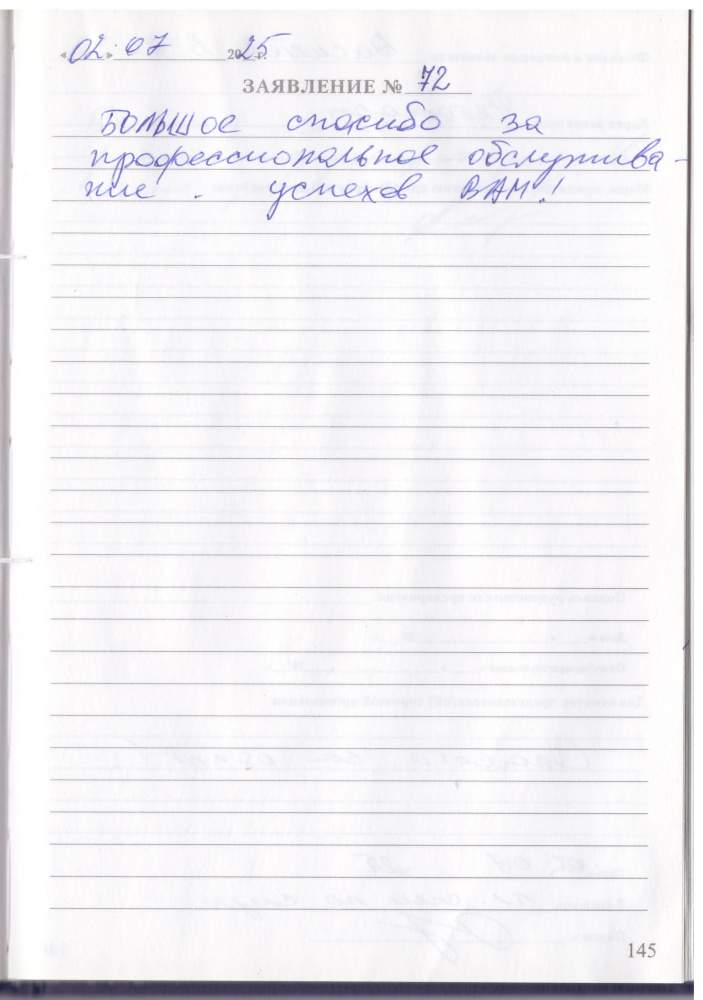 «02» 07 2025 г.
ЗАЯВЛЕНИЕ № 72
Большое спасибо за
профессиональное обслужива-
ние. успехов ВАМ!
145